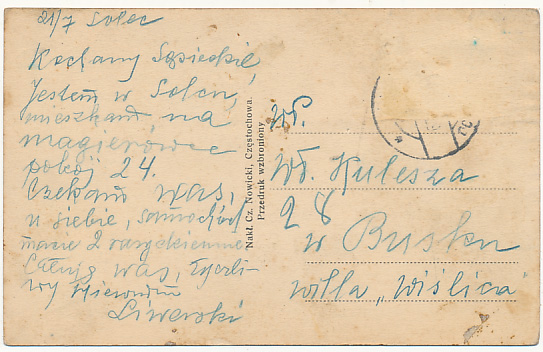 21/7 Solec
Kochany Sąsiedkie,
Jestem w Solcu,
mieszkam na
magierówce
pokój 24.
Czekam was,
u siebie, samochód
macie 2 razy dziennie
Całuję was,
Liwerski
Nakł. Cz. Nowicki, Częstochowa.
Przedruk wzbroniony
WP.
Wł. Kulesza
28
w Busku
willa „Wiślica”